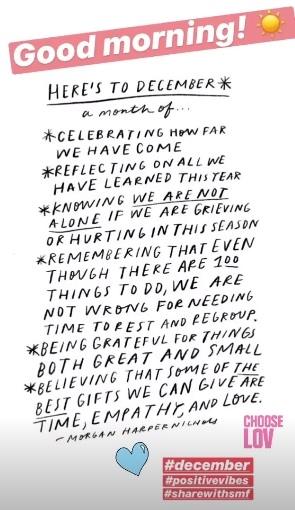 Good morning!
HERE'S TO DECEMBER*
a month of...
*CELEBRATING HOW FAR
WE HAVE COME
*REFLECTING ON ALL WE
HAVE LEARNED THIS YEAR
*KNOWING WE ARE NOT
ALONE IF WE ARE GRIEVING
OR HURTING IN THIS SEASON
*REMEMBERING THAT EVEN
THOUGH THERE ARE 100
THINGS TO DO, WE ARE
NOT WRONG FOR NEEDING
TIME TO REST AND REGROUP.
*BEING GRATEFUL FOR THINGS
BOTH GREAT AND SMALL
*BELIEVING THAT SOME OF THE
BEST GIFTS WE CAN GIVE ARE
TIME, EMPATHY, AND LOVE.
- MORGAN HARPER NICHOLS
CHOOSE
LOV
#december
#positivevibes
#sharewithsmf